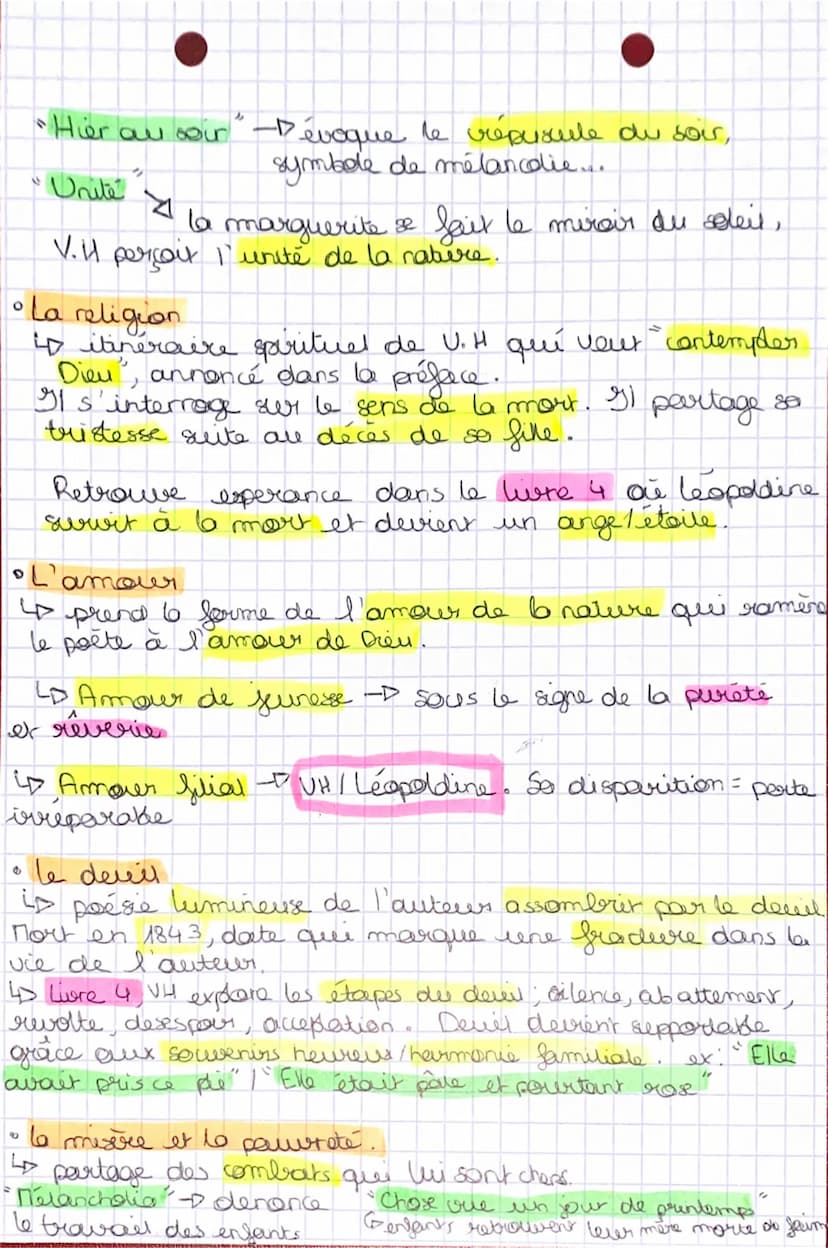 "Hier au soir" → évoque le crépuscule du soir,
symbole de mélancolie...
"Unité"
↘ la marguerite se fait le miroir du soleil,
V.H perçoit l'unité de la nature.
° La religion
↳ itinéraire spirituel de V.H qui veut "contempler
Dieu", annoncé dans la préface.
Il s'interroge sur le sens de la mort. Il partage sa
tristesse suite au décès de sa fille.
Retrouve esperance dans le livre 4 où Léopoldine
survit à la mort et devient un ange/étoile.
° L'amour
↳ prend la forme de l'amour de la nature qui ramène
le poète à l'amour de Dieu.
↳ Amour de jeunesse → sous le signe de la pureté
et rêverie
↳ Amour filial → VH/Léopoldine. Sa disparition = perte
irréparable
° le deuil
↳ poésie lumineuse de l'auteur assombrit par le deuil
Mort en 1843, date qui marque une fracture dans la
vie de l'auteur.
↳ Livre 4, VH explore les étapes du deuil; silence, abattement,
revolte, desespoir, acceptation. Deuil devient supportable
grâce aux souvenirs heureux/harmonie familiale. ex: "Elle
avait pris ce pli" / "Elle était pâle et pourtant rose"
° la misère et la pauvreté.
↳ partage des combats qui lui sont chers.
"Melancholia" → denonce "Chose vue un jour de printemps"
le travail des enfants ↳ enfants retrouvent leur mère morte de faim